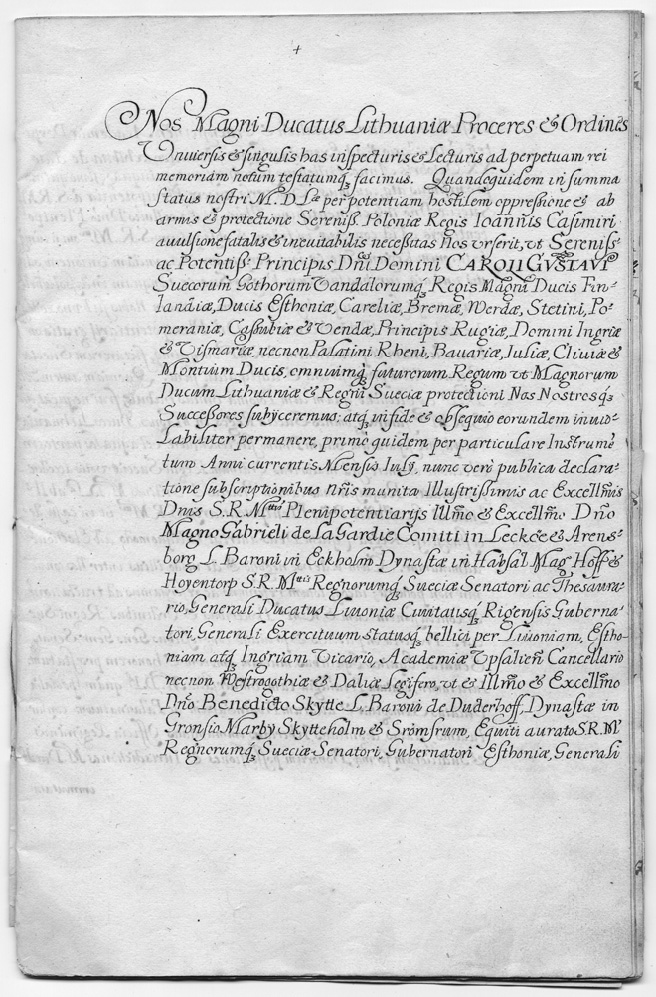 Nos Magni Ducatus Lithuaniæ Proceres & Ordines
Universis & singulis has inspecturis & Lecturis ad perpetuam rei
memoriam notum testatumq₃ facimus. Quandoquidem in summa
status nostri M. D. Læ per potentiam hostilem oppressione & ab
armis & protectione Sereniss. Poloniæ Regis Ioannis Casimiri
avulsione fatalis & inevitabilis necessitas Nos urserit, ut Sereniss:
ac Potentiss: Principis Dni Domini CAROLI GVSTAVI
Suecorum Gothorum Vandalorumq₃ Regis Magni Ducis Fin-
landiæ, Ducis Esthoniæ, Careliæ, Bremæ, Werdæ, Stetini, Po-
meraniæ, Cassubiæ & Vendæ, Principis Rugiæ, Domini Ingriæ
& Vismariæ necnon Palatini Rheni, Bavariæ, Iuliæ, Cliviæ &
Montium Ducis, omniumq₃ futurorum Regum ut Magnorum
Ducum Lithuaniæ & Regni Sueciæ protectioni Nos Nostrosq₃
Successores subijceremus, atq₃ in fide & obsequio eorundem invio-
Labiliter permanere, primo quidem per particulare Instrumē
tum Anni currentis Mensis Iulij, nunc vero publica declara-
tione subscriptionibus nris munita Illustrissimis ac Excellmis
Dnis S. R. Mtis Plenipotentiarijs Illmo & Excellmo Dno
Magno Gabrieli de La Gardie Comiti in Leckœ & Arens-
borg L. Baroni in Eckholm Dynastæ in Habsal Mag Hoff &
Hoyentorp S. R. Mtis Regnorumq₃ Sueciæ Senatori ac Thesaura-
rio, Generali Ducatus Livoniæ Civitatisq₃ Rigensis Guberna-
tori, Generali Exercituum statusq₃ bellici per Livoniam, Estho-
niam atq₃ Ingriam Vicario, Academiæ Vpsalien Cancellario
necnon Westrogothiæ & Daliæ Legifero, ut & Illmo & Excellmo
Dno Benedicto Skytte L. Baroni de Duderhoff, Dynastæ in
Gronsio Marby Skytteholm & Sromsrum, Equiti aurato S. R. M
Regnorumq₃ Sueciæ Senatori, Gubernatori Esthoniæ, Generali